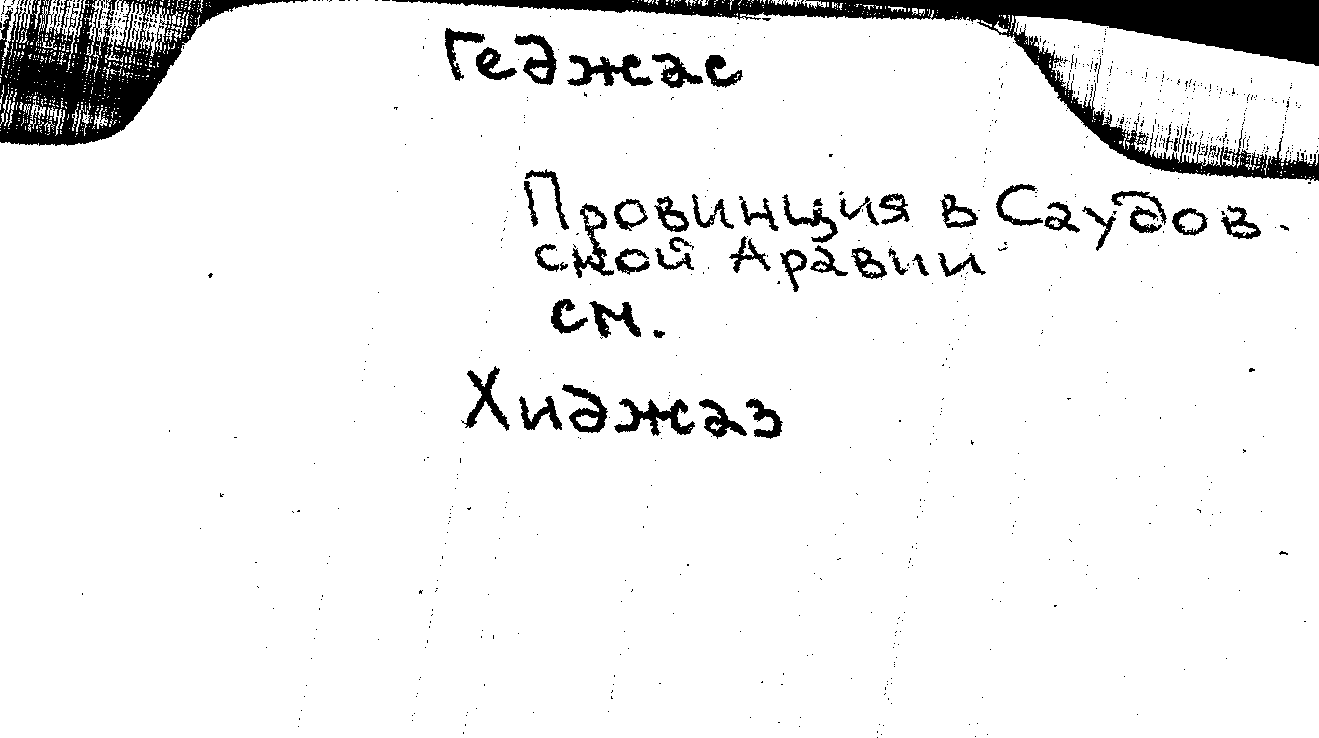 Геджас
Провинция в Саудов-
ской Аравии
см.
Хиджаз